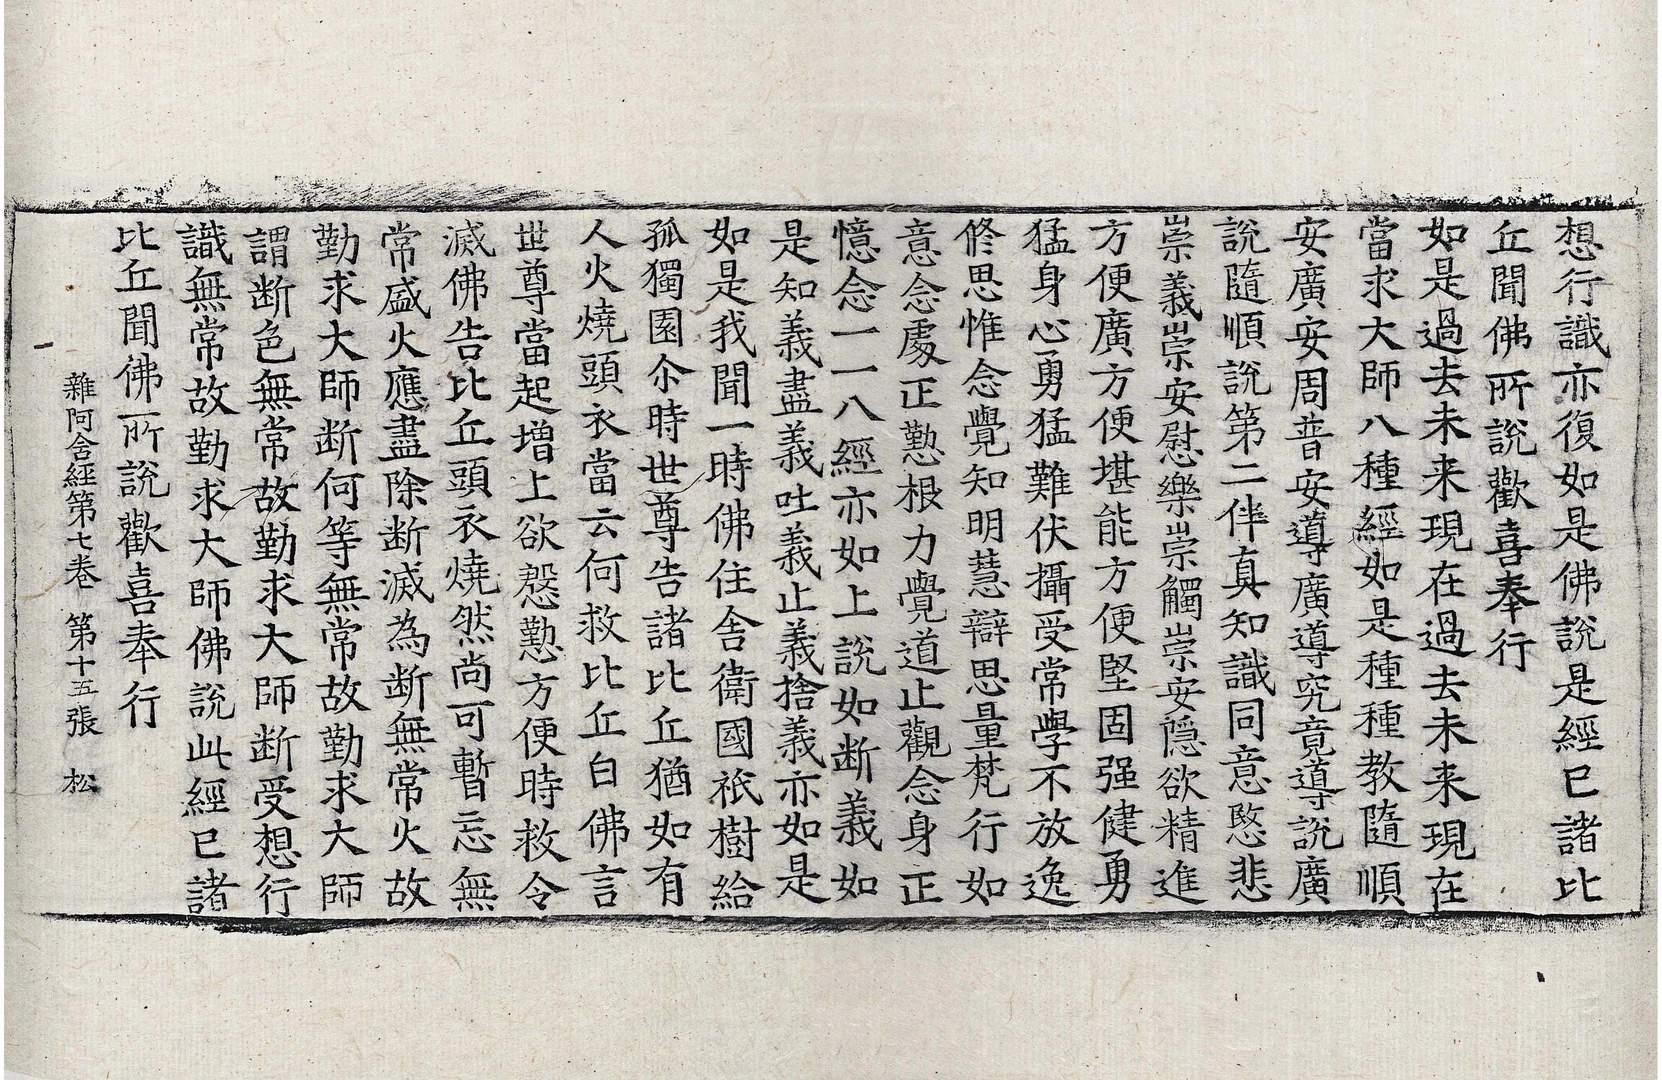 想行識亦復如是佛說是經已諸比
丘聞佛所說歡喜奉行
如是過去未来現在過去未来現在
當求大師八種經如是種種教隨順
安廣安周普安導廣導究竟導說廣
說隨順說第二伴真知識同意愍悲
崇義崇安慰樂崇觸崇安隱欲精進
方便廣方便堪能方便堅固强健勇
猛身心勇猛難伏攝受常學不放逸
修思惟念覺知明慧辯思量梵行如
意念處正懃根力覺道止觀念身正
憶念一一八經亦如上說如断義如
是知義盡義吐義止義捨義亦如是
如是我聞一時佛住舍衛國祇樹給
孤獨園尒時世尊告諸比丘猶如有
人火燒頭衣當云何救比丘白佛言
世尊當起增上欲慇懃方便時救令
滅佛告比丘頭衣燒然尚可暫忘無
常盛火應盡除断滅為断無常火故
勤求大師断何等無常故勤求大師
謂断色無常故勤求大師断受想行
識無常故勤求大師佛說此經已諸
比丘聞佛所說歡喜奉行
雜阿含經第七卷　第十五張　松